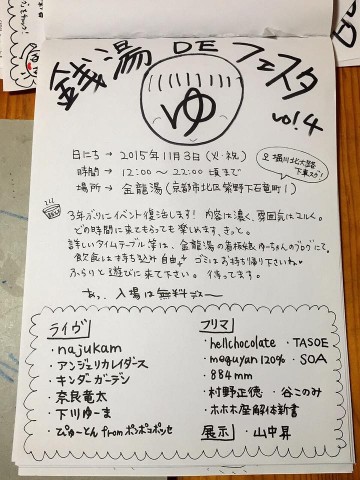 銭湯 DE フェスタ
ゆ
vol.4
日にち → 2015年11月3日(火・祝)
時間 → 12:00〜22:00頃まで
場所 → 金龍湯(京都市北区紫野下石龍町1)
堀川北大路
下車スグ!
3年ぶりにイベント復活します! 内容は濃く、雰囲気はユルく。
どの時間に来てもらっても楽しめます、きっと。
詳しいタイムテーブル等は、金龍湯の看板娘ゆーちゃんのブログにて。
飲食は持ち込み自由 ゴミはお持ち帰り下さいね
ふらりと遊びに来て下さい。待ってます。
あっ、入場は無料デス〜
ライヴ
・najukam
・アンジェリカレイダース
・キンダーガーデン
・奈良竜太
・下川ゆーま
・ぴゅーとん fromポンポコポッセ
フリマ
・hellchocolate ・TASOE
・moguyan120% ・SOA
・884mm
・村野正徳 ・谷このみ
・ホホホ座解体新書
展示 ・山中昇